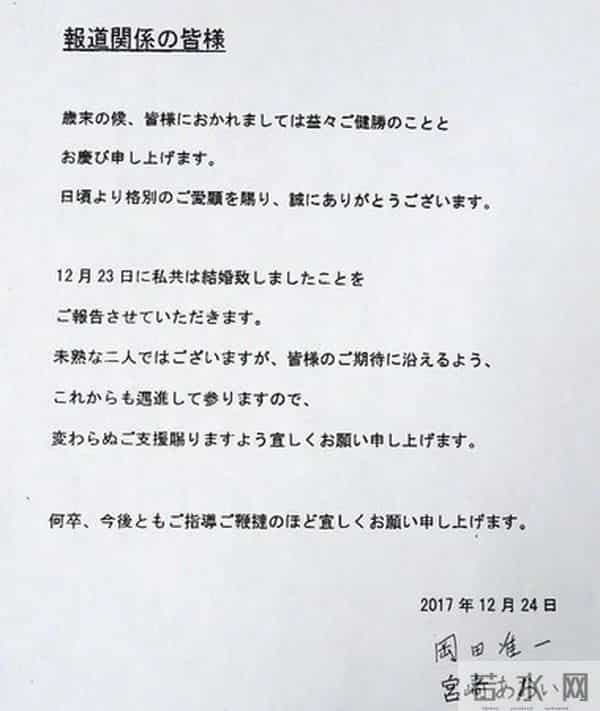 報道関係の皆様
歳末の候、皆様におかれましては益々ご健勝のことと
お慶び申し上げます。
日頃より格別のご愛顧を賜り、誠にありがとうございます。
12月23日に私共は結婚致しましたことを
ご報告させていただきます。
未熟な二人ではございますが、皆様のご期待に沿えるよう、
これからも邁進して参りますので、
変わらぬご支援賜りますよう宜しくお願い申し上げます。
何卒、今後ともご指導ご鞭撻のほど宜しくお願い申し上げます。
2017年12月24日
岡田准一
宮﨑あおい
若水网